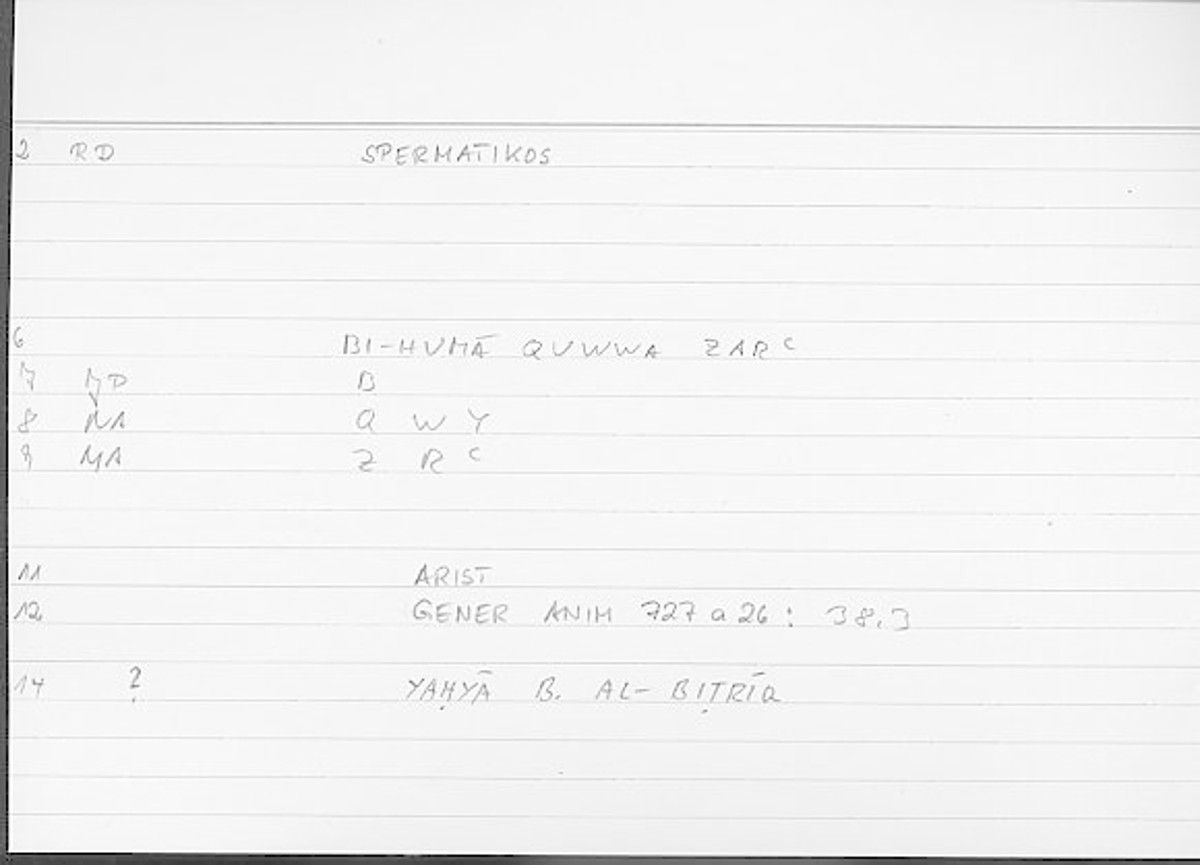 2 RD SPERMATIKOS
6 BI-HUMĀ QUWWA ZARᶜ
7 B
8 NA Q W Y
9 MA Z R ᶜ
11 ARIST
12 GENER ANIM 727 a 26 : 38.3
14 ? YAḤYĀ B. AL-BIṬRĪQ